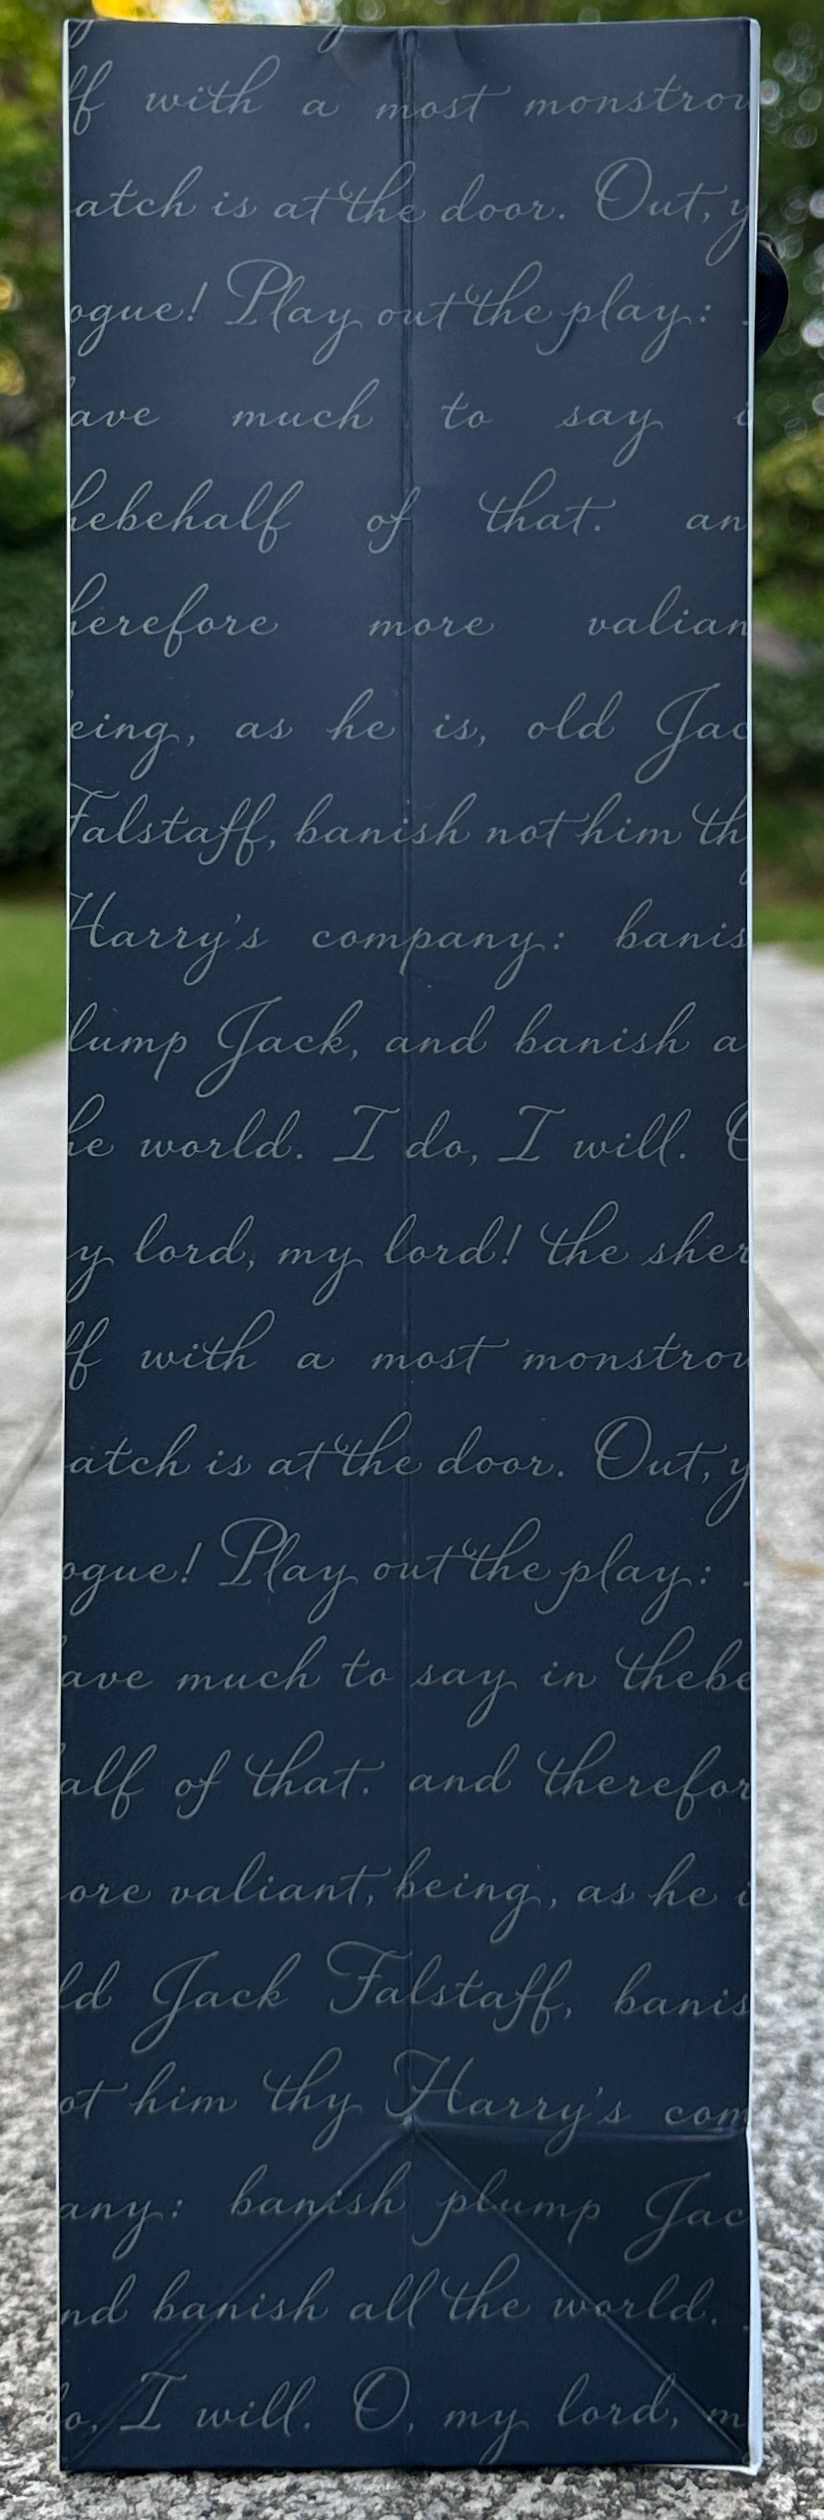 ff with a most monstrou
atch is at the door. Out, y
ogue! Play out the play: .
ave much to say i
hebehalf of that. an
herefore more valian
eing, as he is, old Jac
Falstaff, banish not him th
Harry's company: banis
lump Jack, and banish a
he world. I do, I will. O
y lord, my lord! the sher
ff with a most monstrou
atch is at the door. Out, y
ogue! Play out the play: .
ave much to say in thebe
alf of that. and therefor
ore valiant, being, as he i
ld Jack Falstaff, banis
ot him thy Harry's com
any: banish plump Jac
nd banish all the world. .
o, I will. O, my lord, m